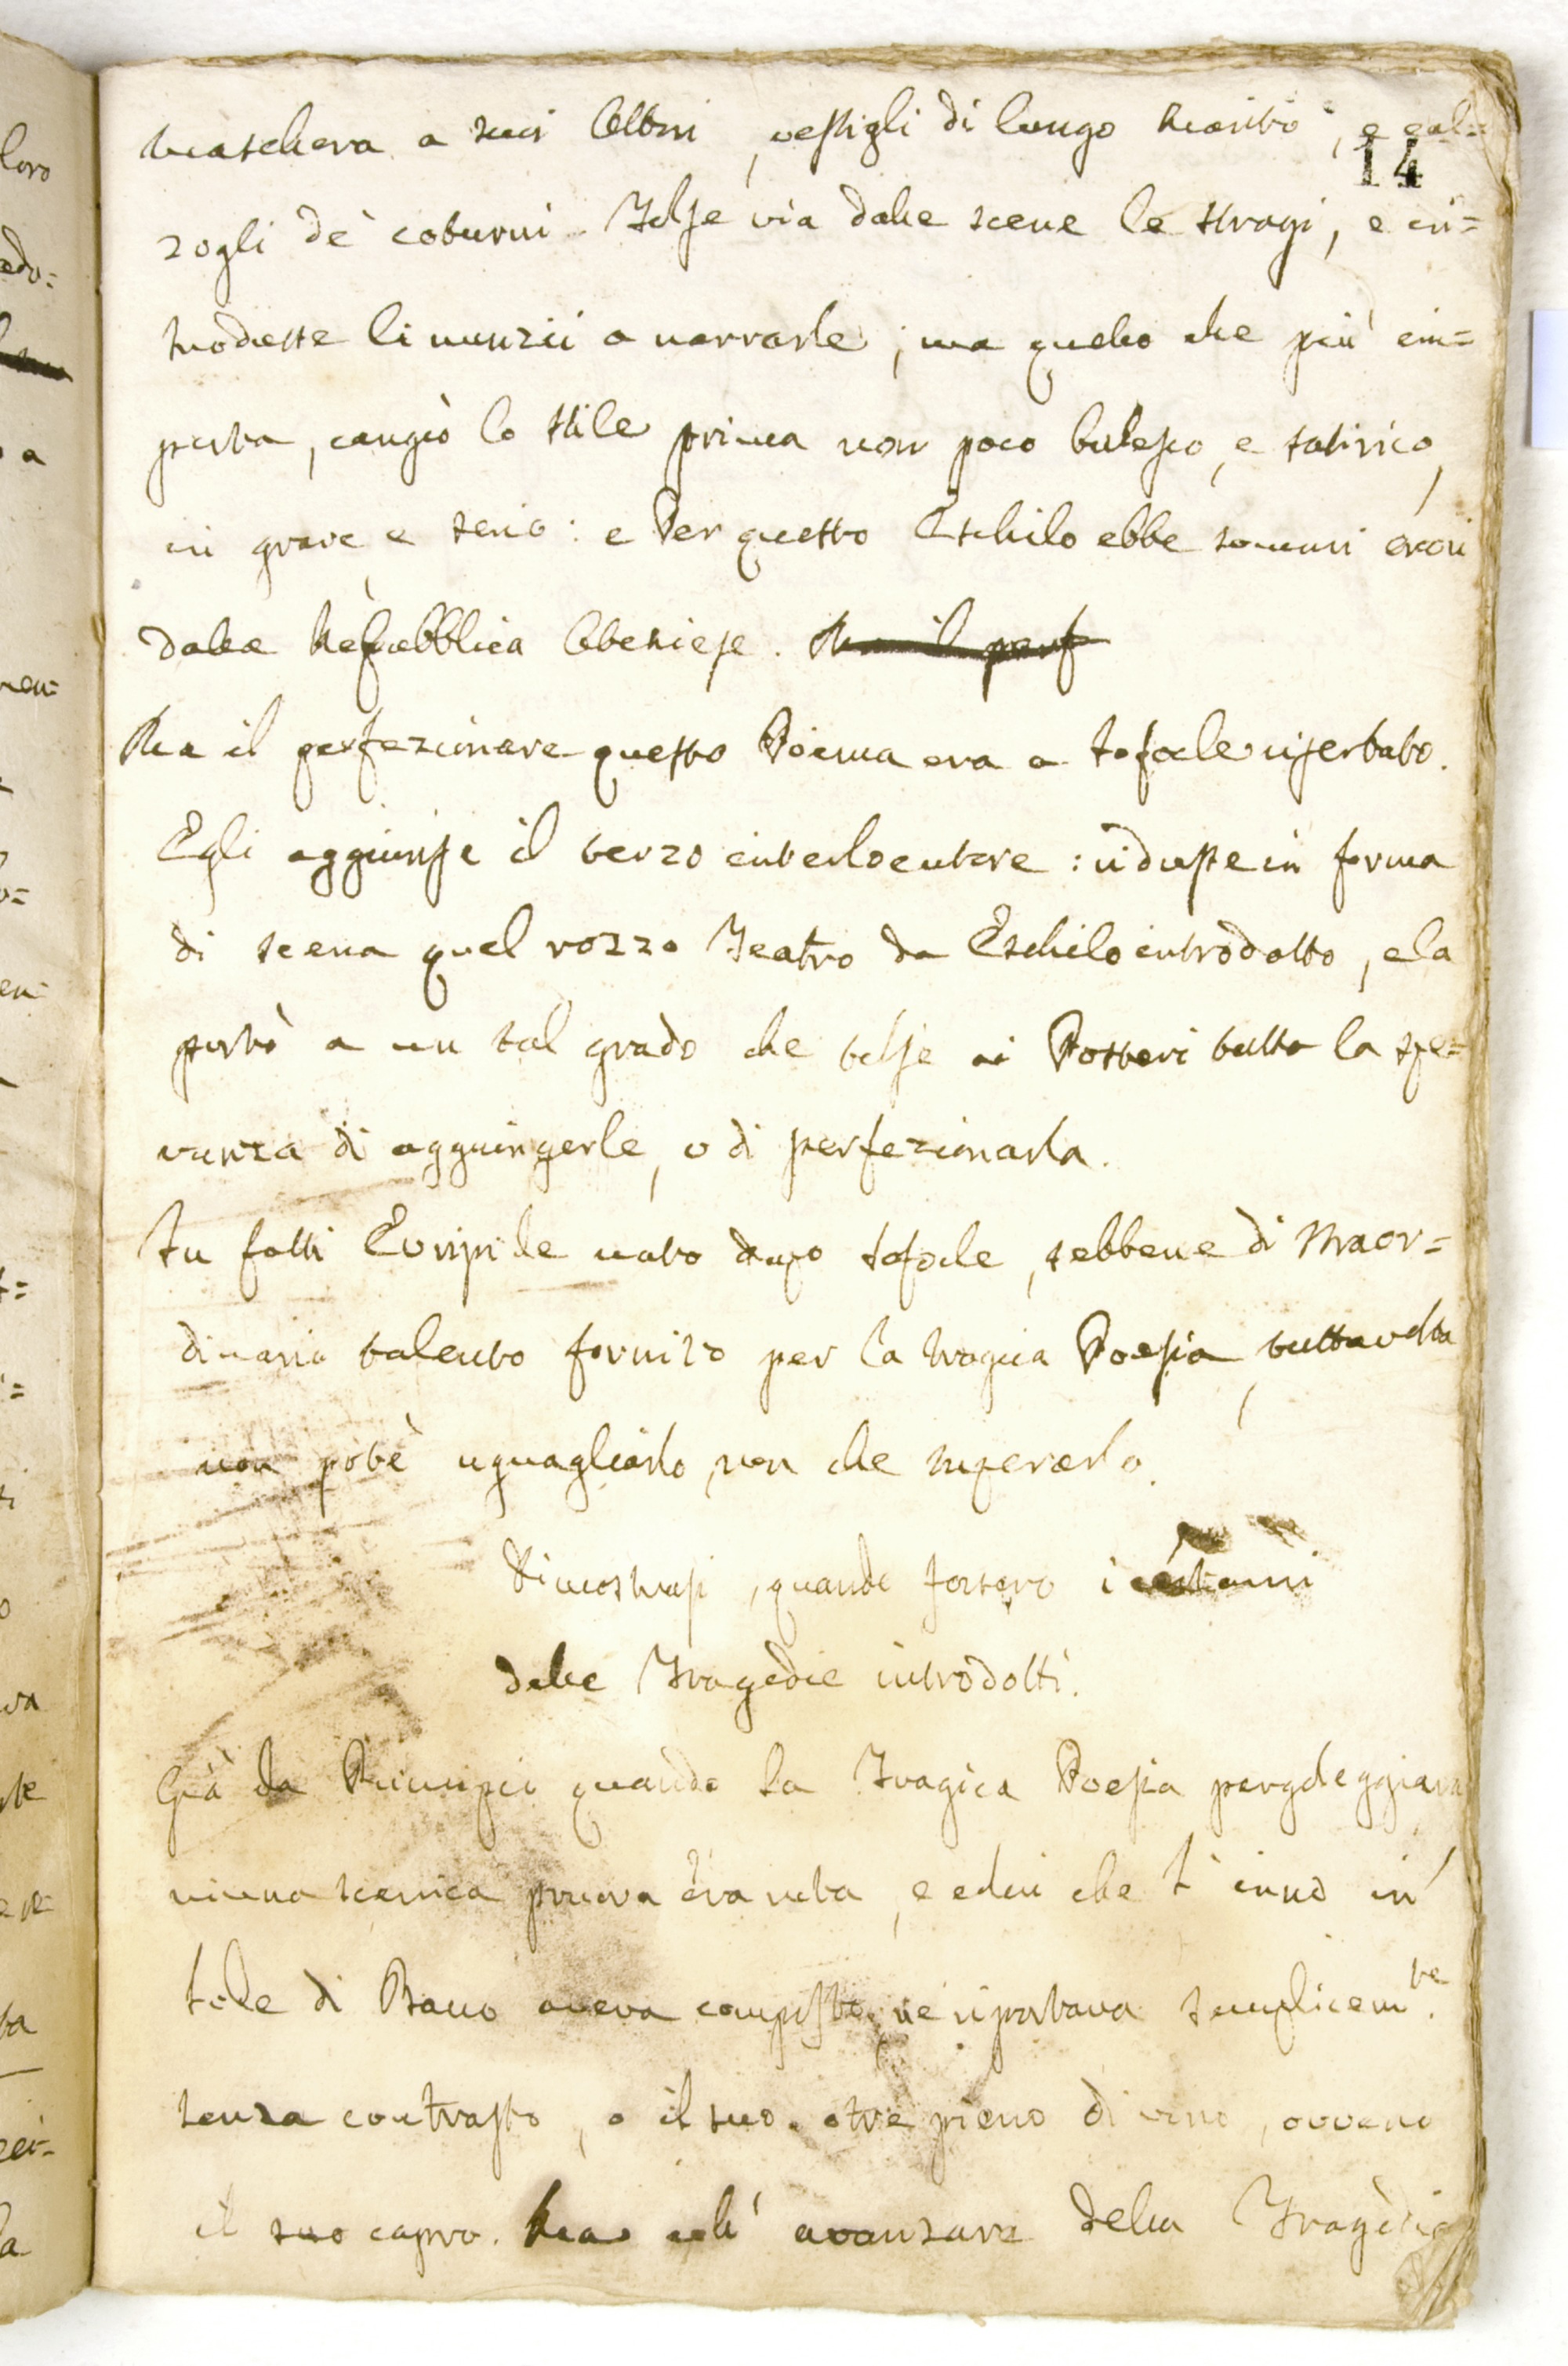 maschera a suoi Attori, vestigli di lungo manto, e cal=
14
zogli de' coturni. Tolse via dalle scene le stragi, e in=
trodusse li nunzii a narrarle; ma quello che più im=
porta, cangiò lo stile prima non poco bulesco, e satirico,
in grave e serio: e Per questo Eschilo ebbe sommi onori
dalla Repubblica Ateniese. Ma il perf
Ma il perfezionare questo Poema era a Sofocle riserbato.
Egli aggiunse il terzo interlocutore: ridusse in forma
di scena quel rozzo Teatro da Eschilo introdotto, e la
portò a un tal grado che tolse ai Posteri tutta la spe=
ranza di aggiungerle, o di perfezionarla.
In fatti Euripide nato dopo Sofocle, sebbene di straor=
dinario talento fornito per la tragica Poesia, tuttavolta
non potè uguagliarlo, non che superarlo.
Dimostrasi, quando fossero i certami
delle Tragedie introdotti.
Già da Principio quando la Tragica Poesia pargoleggiava
niuna scenica pruova era nata, e colui che l' inno in
lode di Bacco aveva composto, ne riportava semplicem.te
senza contrasto, o il suo otre pieno di vino, ovvero
il suo capro. Ma coll' avanzare della Tragedia